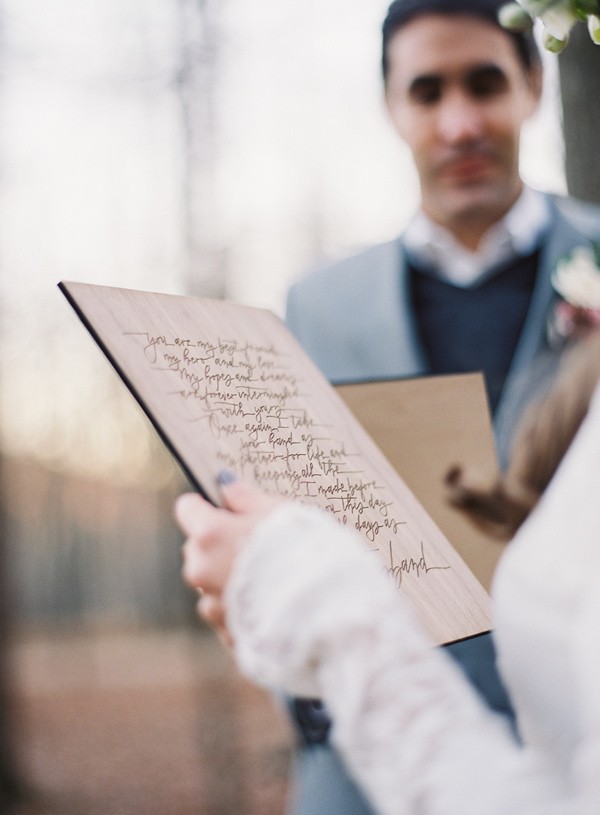 you are my best friend
my hero and my love
my hopes and dreams
are forever intermingled
with yours
Once again I take
your hand as
my partner for life and
keeping all the
I made before
you this day
days as